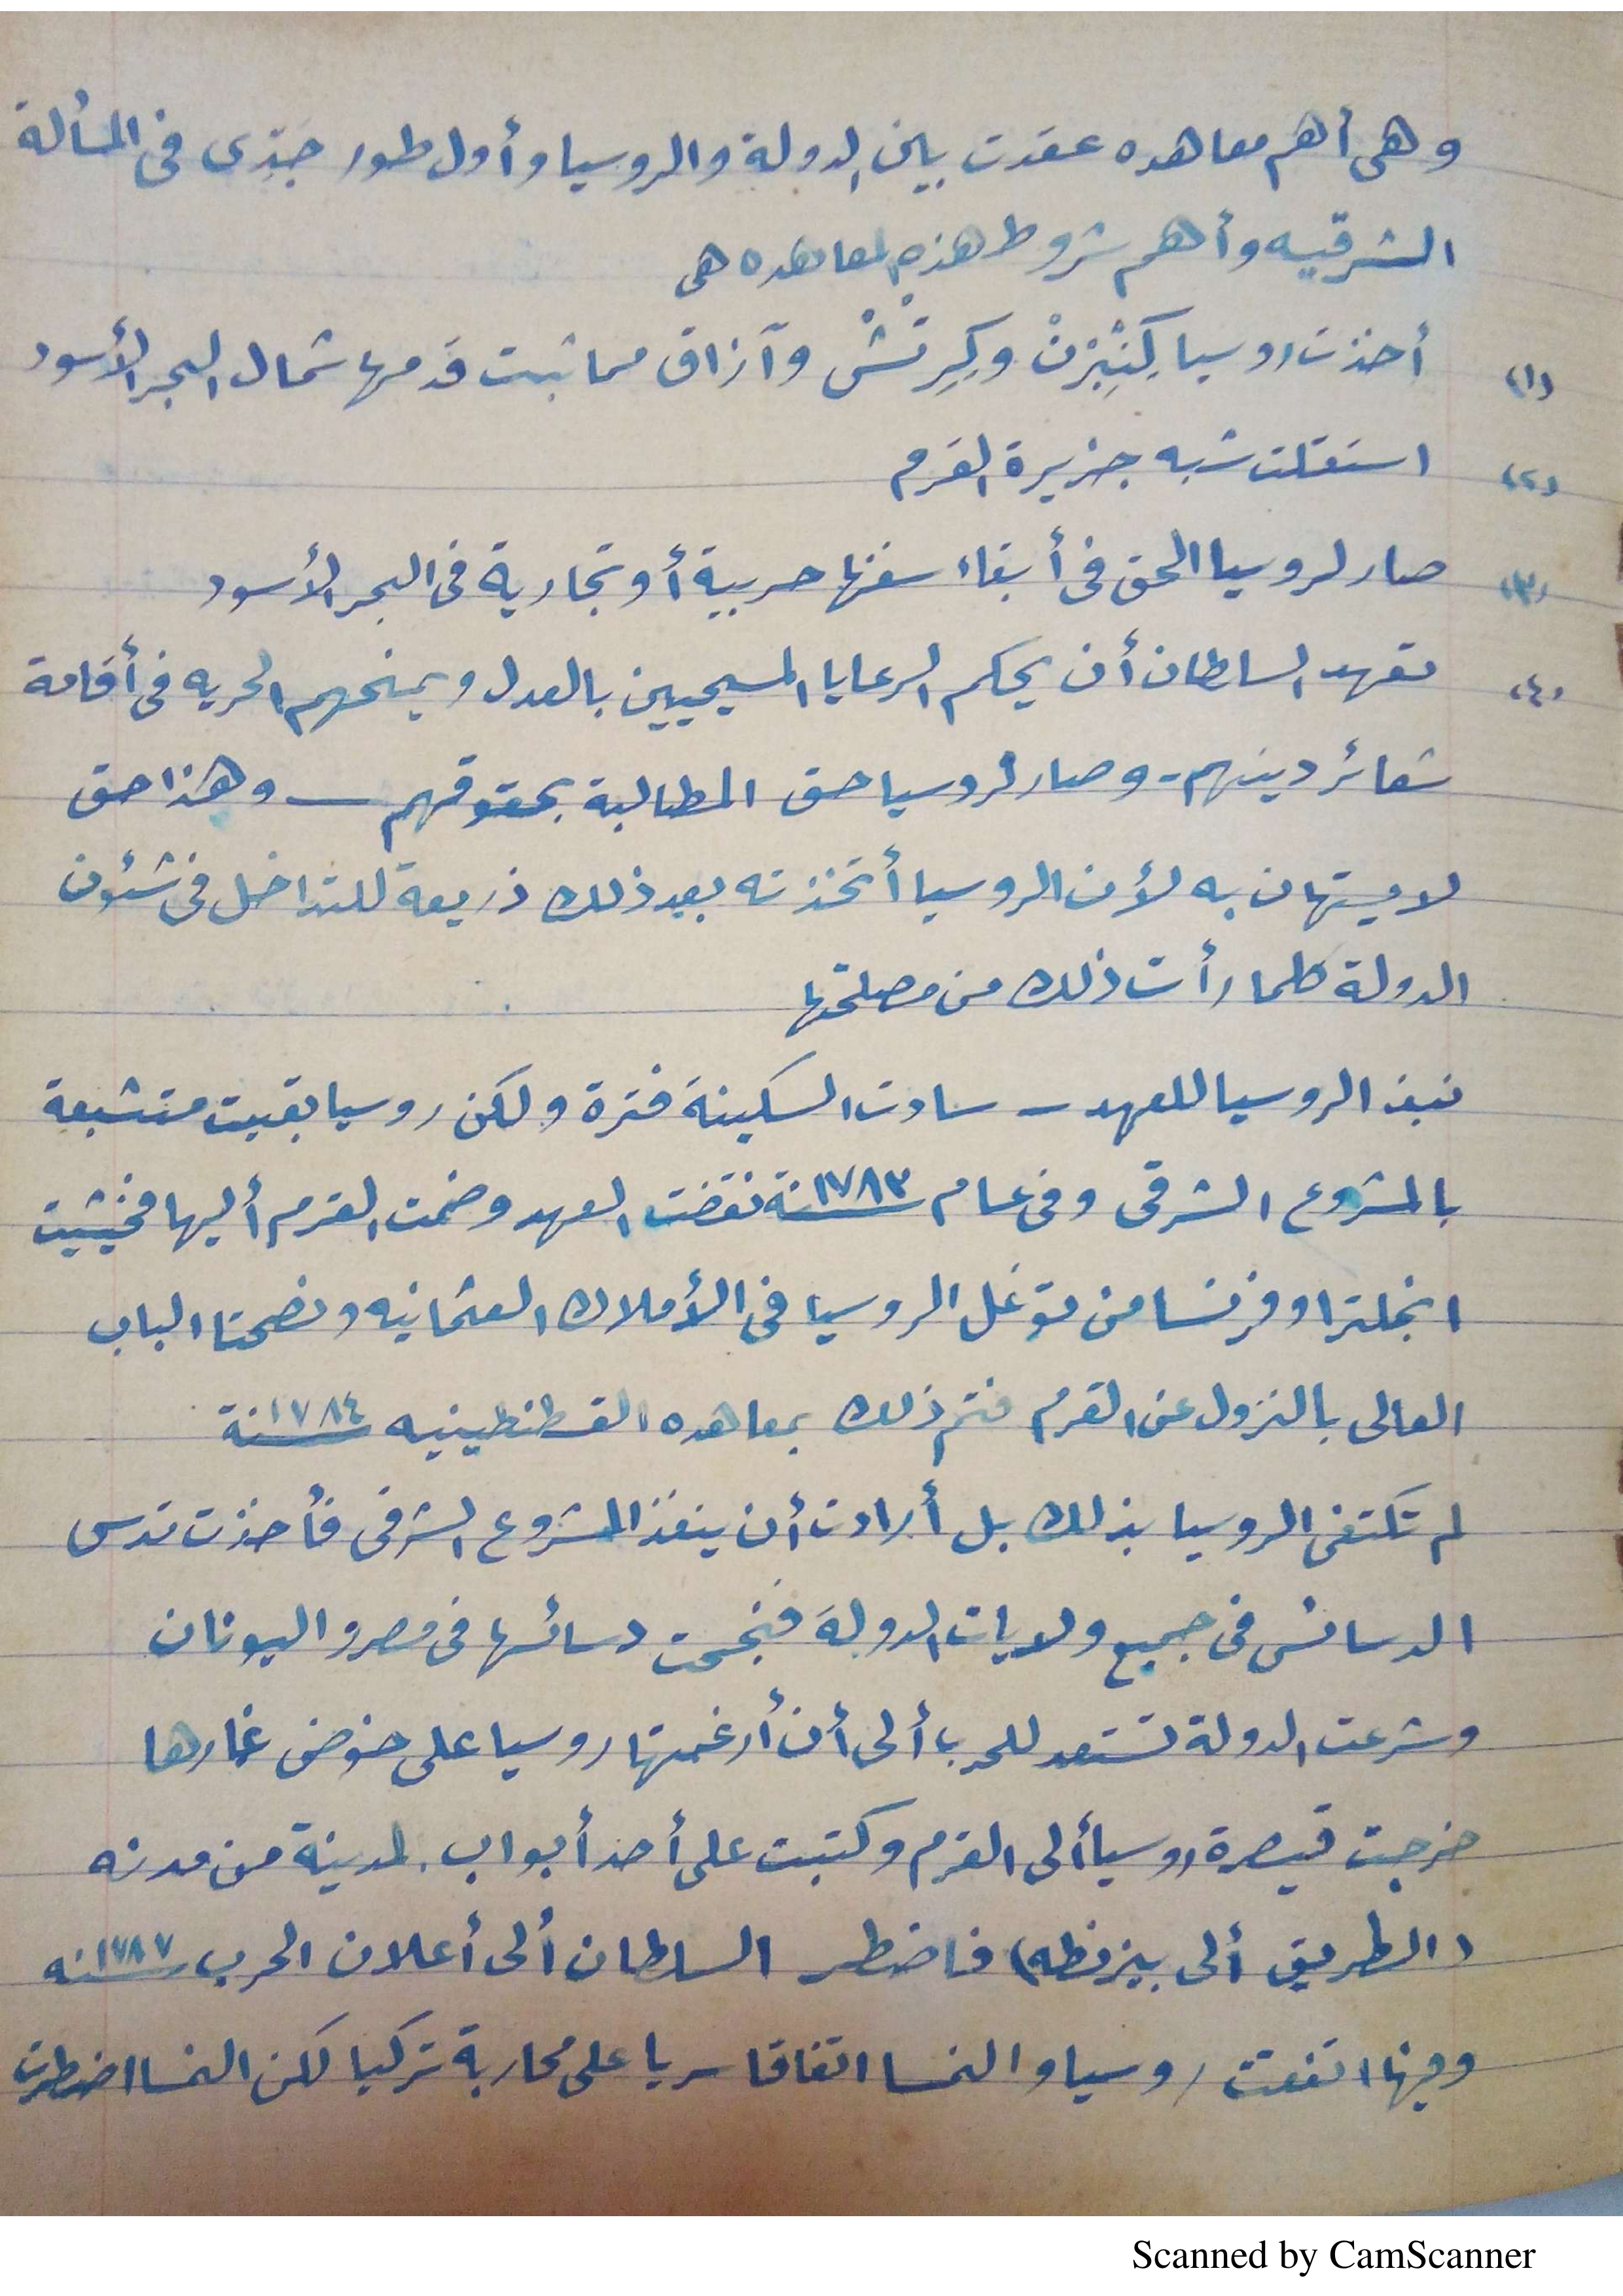 وهى أهم معاهده عقدت بين الدولة والروسيا وأول طور جدّى فى المسألة
الشرقيه وأهم شروط هذه المعاهده هى
(١) أخذت روسيا كِنِبْرَنْ وكِرِتْشْ وآزاق مما ثبت قدمها شمال البحر الأسود
(٢) استقلت شبه جزيرة القرم
(٣) صار لروسيا الحق فى أبقاء سفنها حربية أو تجارية فى البحر الأسود
(٤) تعهد السلطان أن يحكم الرعايا المسيحيين بالعدل ويمنحهم الحريه فى أقامة
شعائر دينهم - وصار لروسيا حق المطالبة بحقوقهم — وهذا حق
لا يستهان به لأن الروسيا أتخذته بعد ذلك ذريعة للتداخل فى شئون
الدولة كلما رأت ذلك من مصلحتها
نبذ الروسيا للعهد - سادت السكينة فترة ولكن روسيا بقيت متشبعة
بالمشروع الشرقى وفى عام ١٧٨٣ سنة نقضت العهد وضمت القرم أليها فخشيت
انجلترا وفرنسا من توغل الروسيا فى الأملاك العثمانيه ونصحتا الباب
العالى بالنزول عن القرم فتم ذلك بمعاهده القسطنطينيه ١٧٨٤ سنة
لم تكتفى الروسيا بذلك بل أرادت أن ينفذ المشروع الشرقى فأخذت تدس
الدسائس فى جميع ولايات الدولة فنجحت دسائسها فى مصر واليونان
وشرعت الدولة تستعد للحرب ألى أن أرغمتها روسيا على خوض غمارها
خرجت قيصرة روسيا ألى القرم وكتبت على أحد أبواب المدينة من مدنه
(الطريق ألى بيزنطه) فاضطر السلطان ألى أعلان الحرب ١٧٨٧ سنه
وفيها اتفقت روسيا والنمسا اتفاقا سريا على محاربة تركيا لكن النمسا اضطرت
Scanned by CamScanner